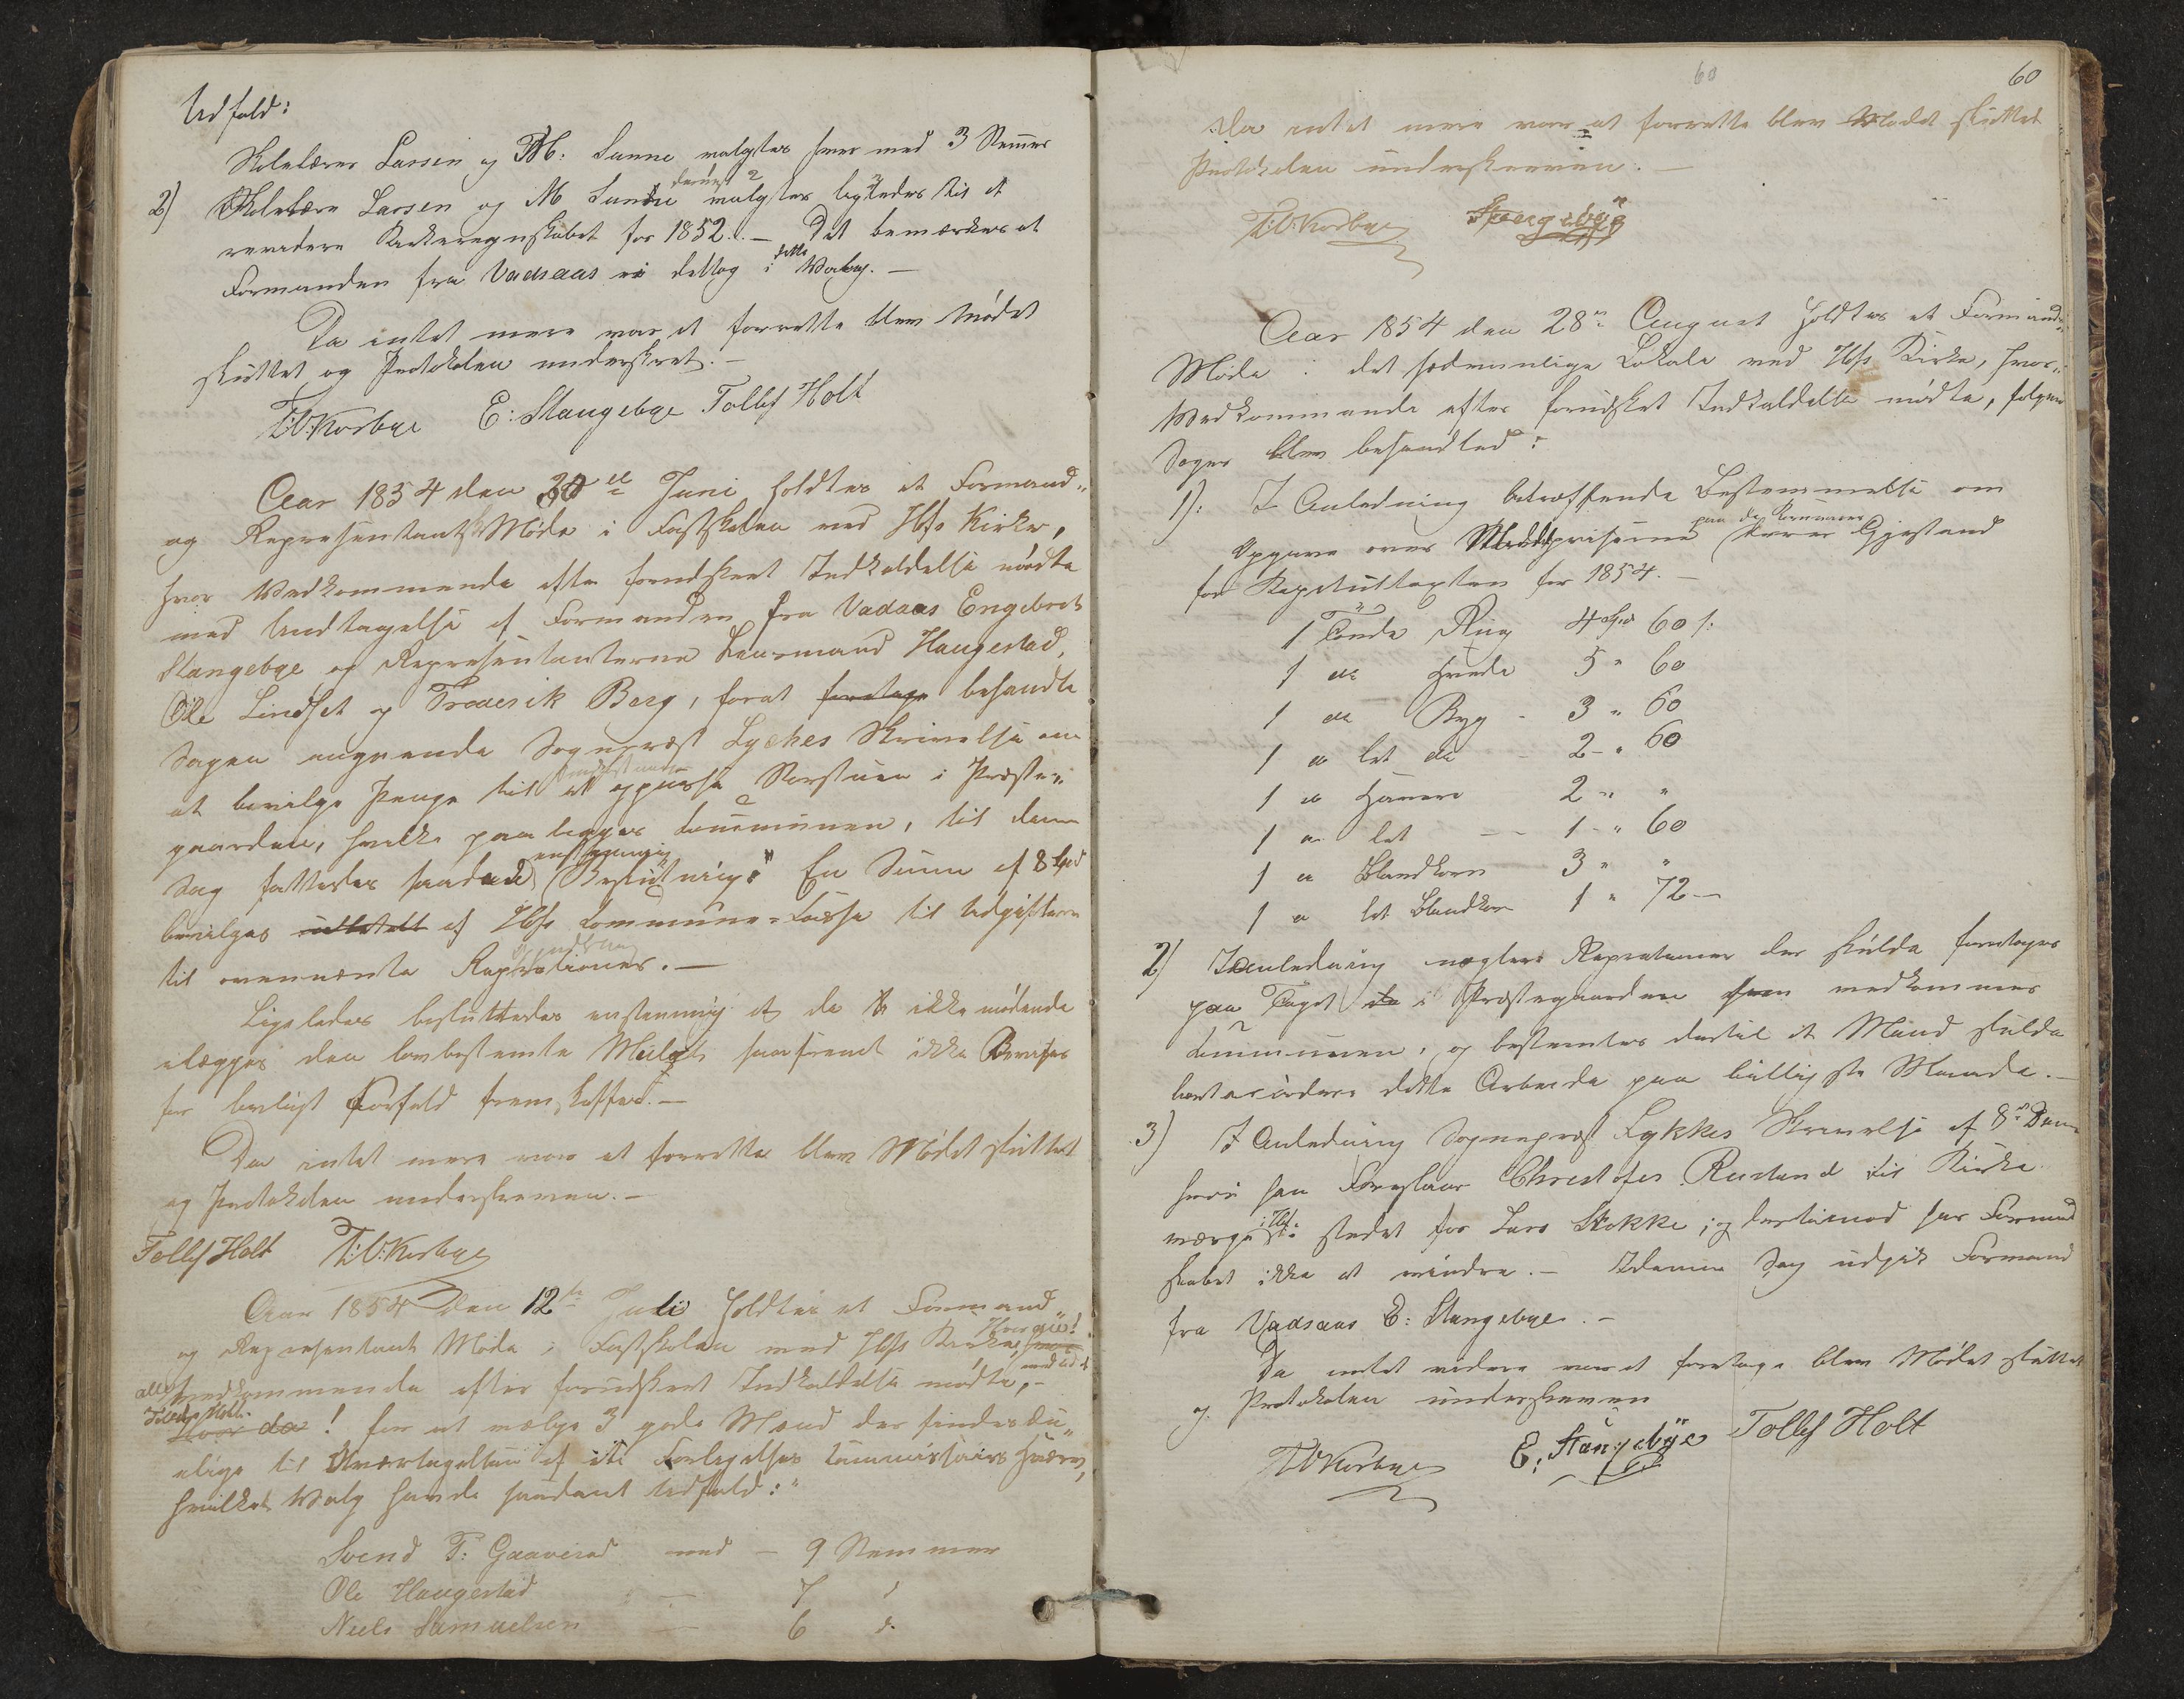 Udfald:
Skolelærer Larsen og M: Sunne valgtes hver med 3 Stemmer
2) Skolelærer Larsen og M Sunne derimod 2 valgtes ligeledes til at
revidere Kirkeregnskabet for 1852. — Det bemærkes at
Formanden fra Vadsaas ei deltog i dette Valg. —
Da intet mere var at forrette blev Mødet
sluttet og Protokolen underskret. —
T:O:Korbye E: Stangebye Tollef Holt
Aar 1854 den 30te Juni holdtes et Formand„
og Representantskab Møde i Fastskolen ved Hofs Kirke,
hvor Vedkommende efter forudskeet Indkaldelse mødte
med Undtagelse af Formanden fra Vadaas Engebret
Stangebye og Representanterne Lensmand Haugestad,
Ole Lindset og Frederik Berg, forat foretage behandle
Sagen angaaende Sognepræst Lyches Skrivelse om
at bevilge Penge til at oppudse Storstuen i Præste„
gaarden, hvilke paaligger Communen, til denne
Sag fattedes saadan enstemmig Beslutning: En Summ af 8 Spd
bevilges udbetalt af Hofs Commune-Casse til Udgifterne
til ovennævnte Reprationer. —
Ligeledes besluttedes enstemmig at de ikke mødende
ilægges den lovbestemte Mulct saafremt ikke Beviser
for lovligt Forfald fremskaffes. —
Da intet mere var at forrette blev Mødet sluttet
og Protokolen underskreven. —
Tollef Holt T:O:Korbye
Aar 1854 den 12te Juli holdtes et Formand„
og Representant Møde i Fastskolen ved Hofs Kirke, hvor
alle Vedkommende efter forudskeet Indkaldelse mødte, –
Tollef Holt. hvor da ! for at vælge 3 gode Mænd der findes du„
elige til Overtagelsen af et Forligelses Commissairs Hverv,
hvilket Valg havde saadant Udfald:
Svend T: Gaaserud med — 9 Stemmer
Ole Haugestad — 7 d
Niels Samuelsen — 6 d.
60
60
Da intet mere var at forrette blev Mødet sluttet
Protokolen underskreven. —
T:O:Korbye Stangebye
Aar 1854 den 28de August holdtes et Formands„
Møde i det sædvanlige Lokale ved Hofs Kirke, hvor„
Vedkommende efter forudskeet Indkaldelse mødte, følgende
Sager blev behandled:
1): I Anledning betræffende Bestemmelse om
Opgave over Middelpriserne paa de Kornvarer
for Kapitultaxten for 1854. —
1 Tønde Rug 4 Spd 60 s:
1 do Hvede 5 " 60
1 do Byg - 3 " 60
1 do let do - 2 - " 60
1 do Havre 2 - " "
1 do let - - 1 - " 60
1 do Blandkorn 3 " "
1 do let Blandkorn 1 " 72 —
2) I Anledning nogle Reprationer der skulde foretages
paa Taget i Præstegaarden som vedkommer
Communen, og bestemtes dertil at Mænd skulde
bortacordere dette Arbeide paa billigste Maade. —
3) I Anledning Sognepræst Lykkes Skrivelse af 8de Dennes
hvori han Foreslaar Christofer Rustand til Kirke
værge i Hof. i stedet for Lars Stokke; og derimod har Formand
skabet ikke at erindre. — I denne Sag udgik Formand
fra Vadsaas E: Stangebye. —
Da intet videre var at foretage blev Mødet sluttet
og Protokolen underskreven
T:O:Korbye E: Stangebye Tollef Holt